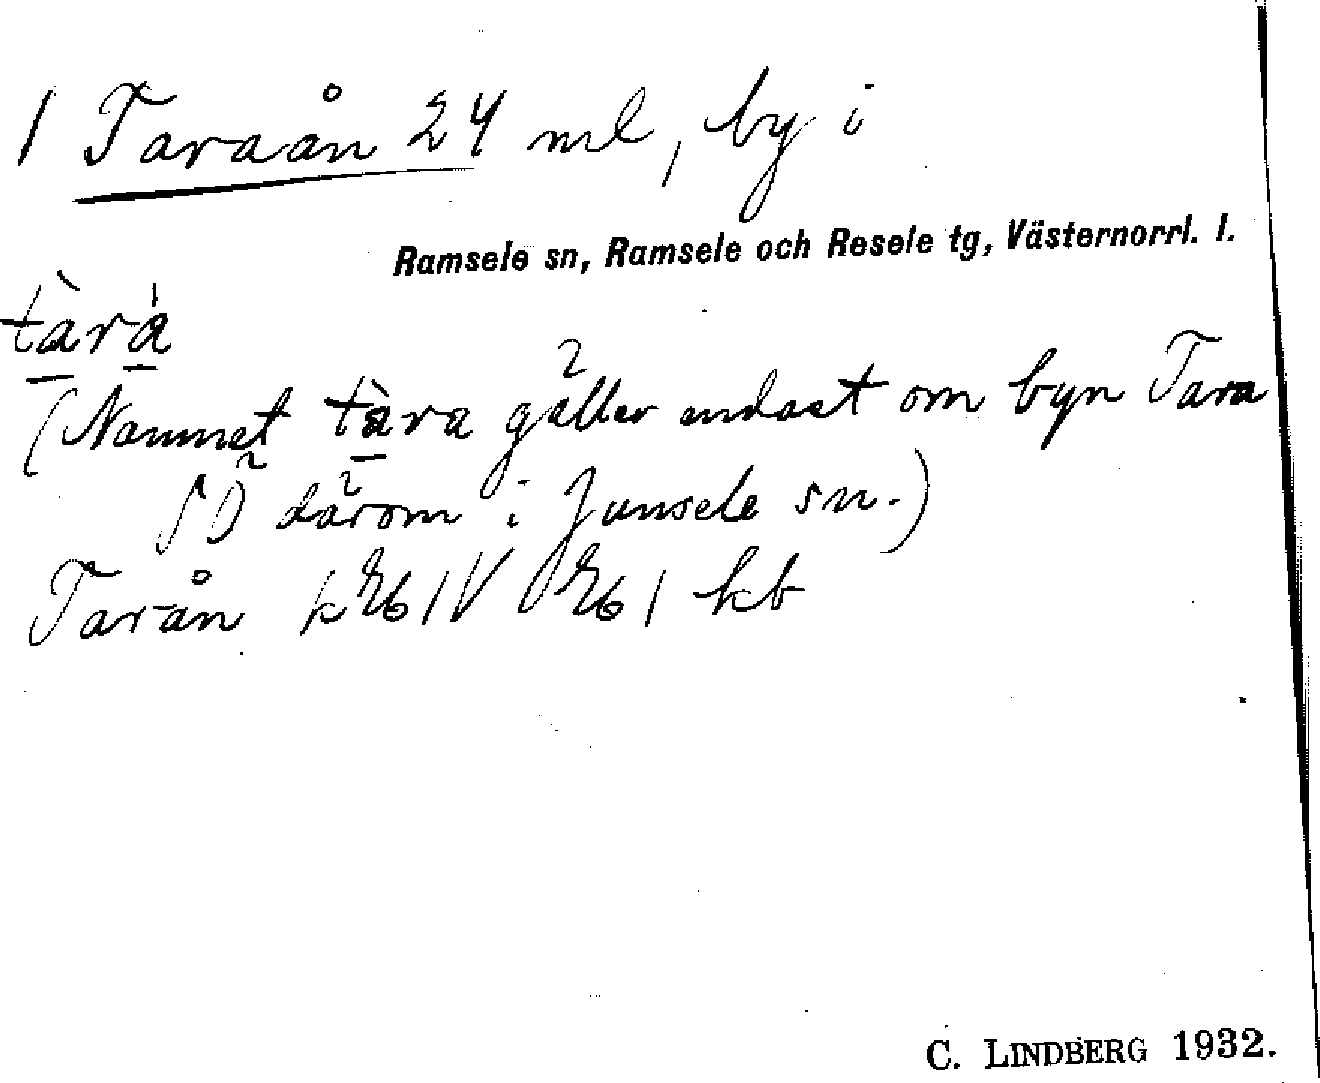 1 Taraån 24 ml, by i
Ramsele sn, Ramsele och Resele tg, Västernorrl. l.
tàrá
(Namnet tàra gäller endast om byn Tara
SÖ därom i Junsele sn.)
Tarån kkb